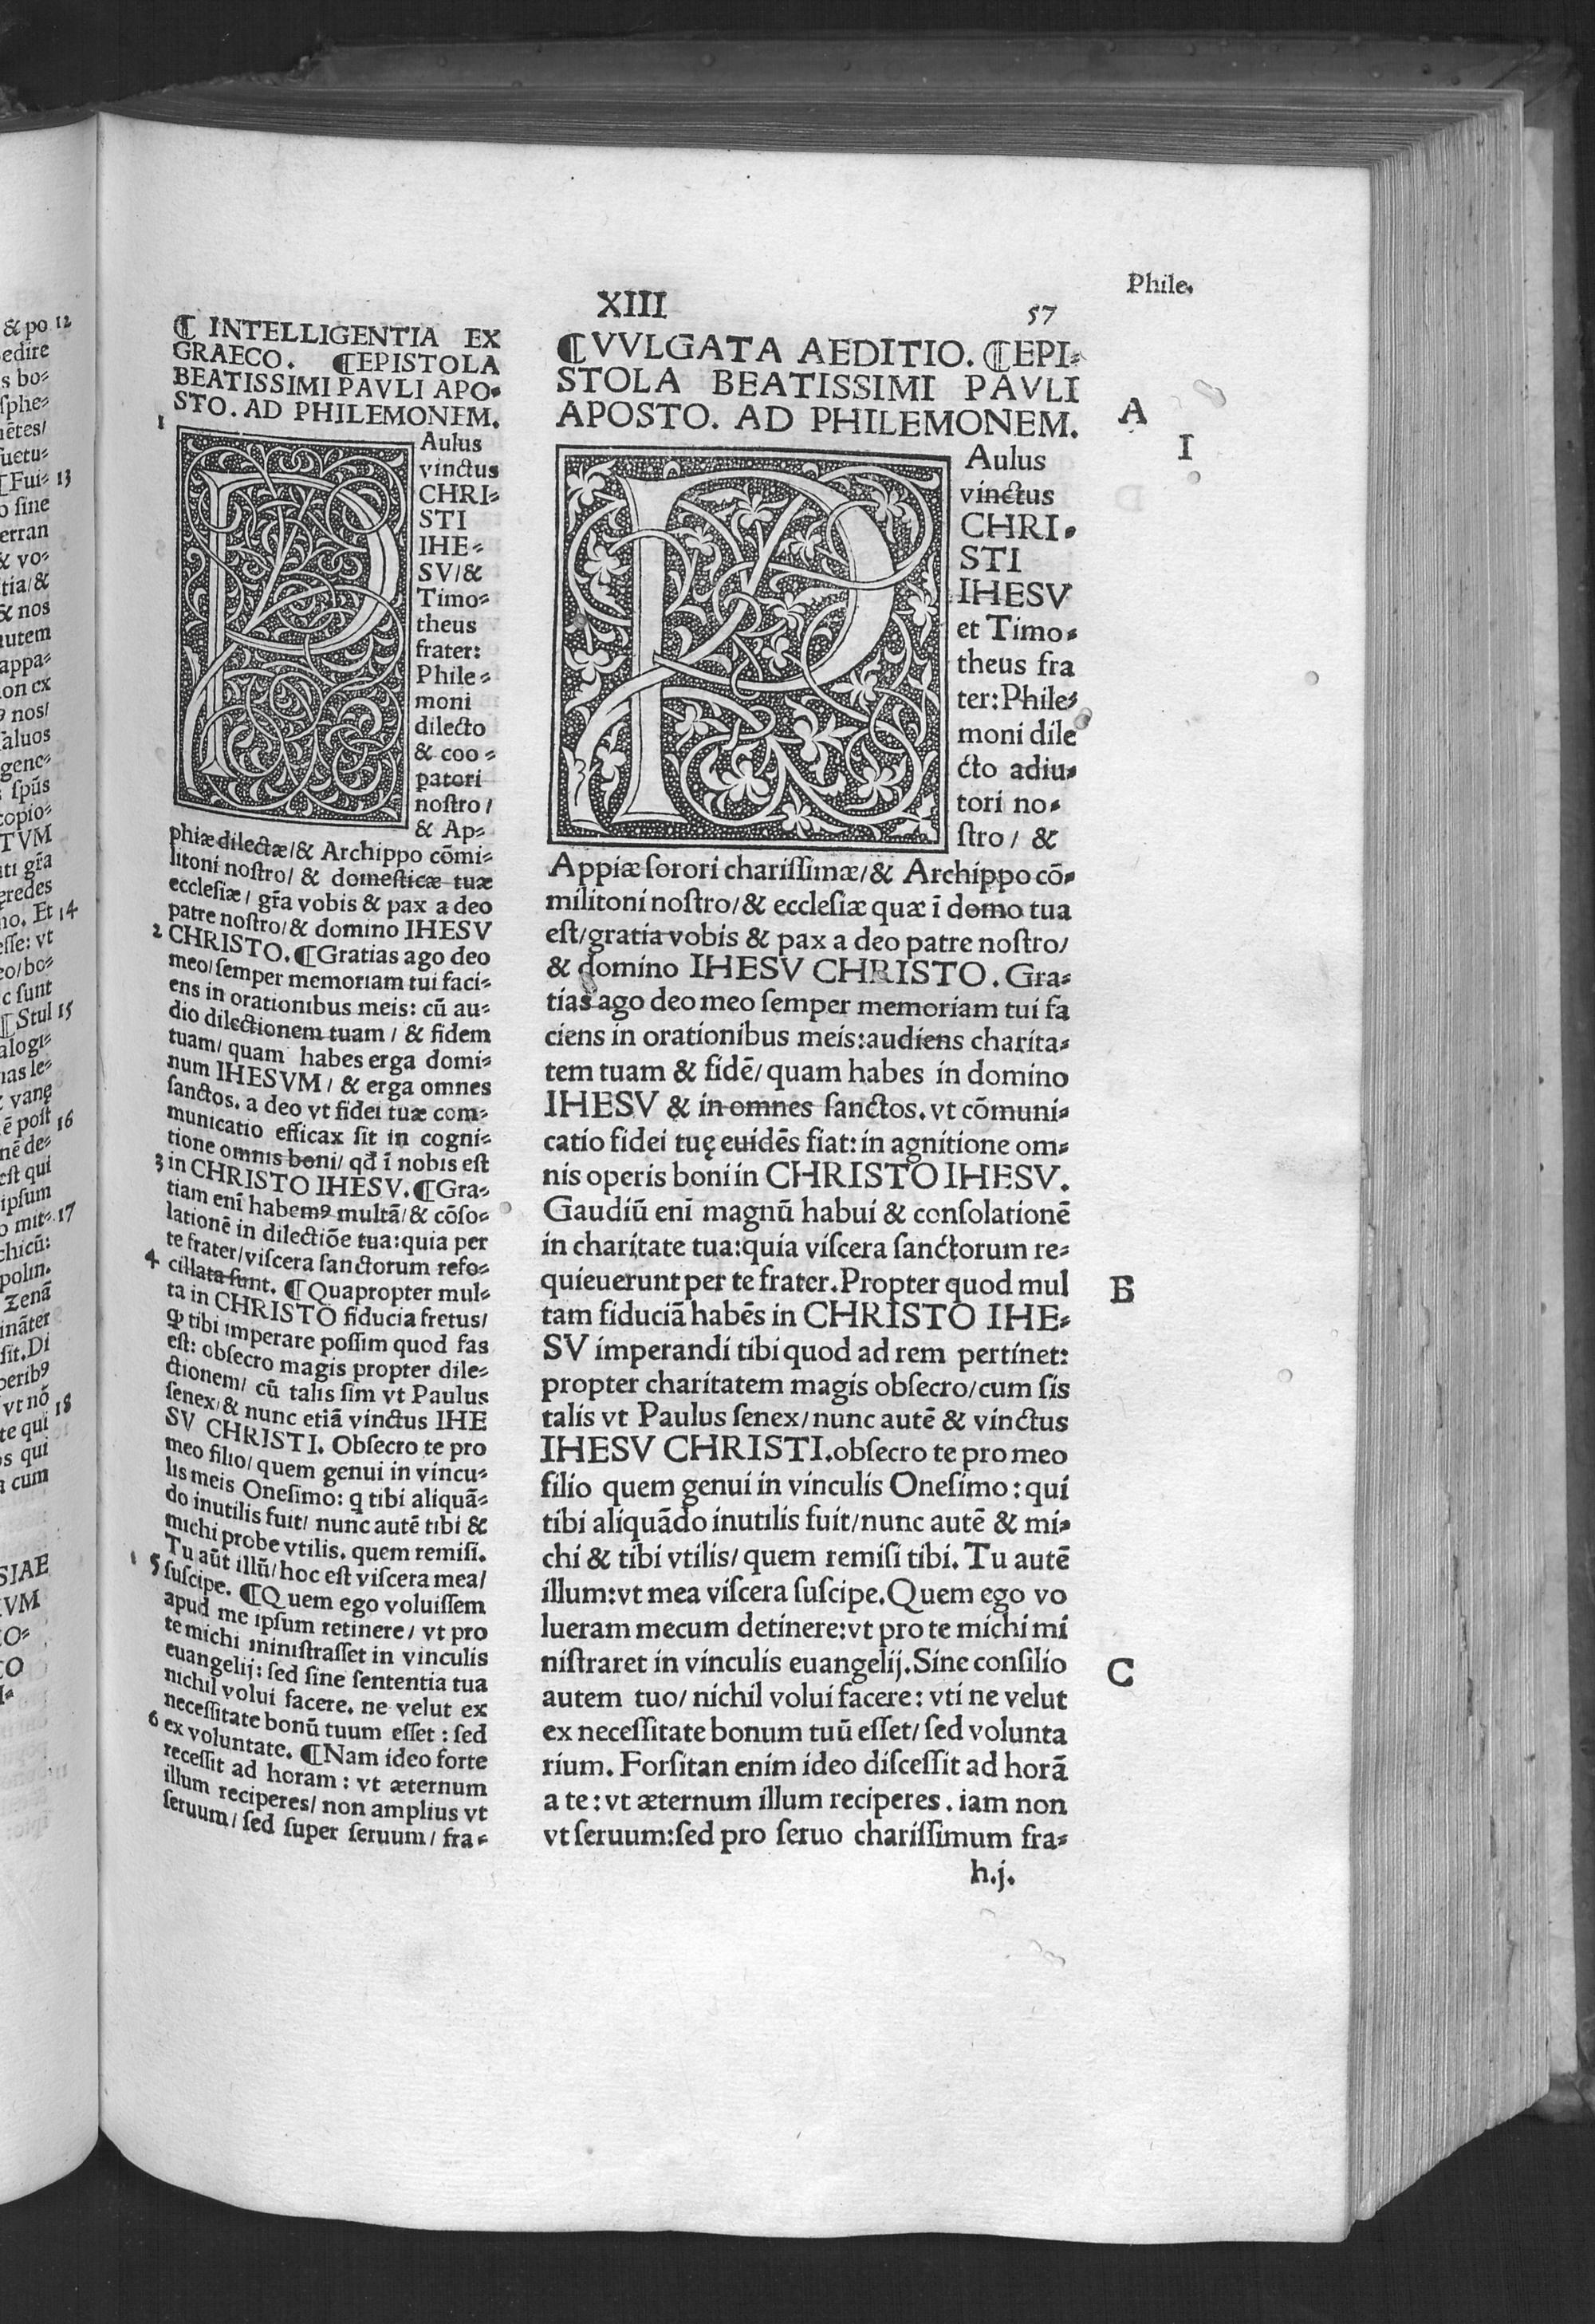 Phile.
XIII
57
¶ INTELLIGENTIA EX
GRAECO. ¶EPISTOLA
BEATISSIMI PAVLI APO-
STO. AD PHILEMONEM.
1
PAulus
vinctus
CHRI-
STI
IHE-
SV/&
Timo-
theus
frater:
Phile-
moni
dilecto
& coo-
patori
nostro/
& Ap-
phiæ dilectæ/& Archippo cōmi-
litoni nostro/ & domesticæ tuæ
ecclesiæ/ gr̄a vobis & pax a deo
patre nostro/& domino IHESV
2 CHRISTO. ¶Gratias ago deo
meo/semper memoriam tui faci-
ens in orationibus meis: cū au-
dio dilectionem tuam/ & fidem
tuam/ quam habes erga domi-
num IHESVM/ & erga omnes
sanctos. a deo vt fidei tuæ com-
municatio efficax sit in cogni-
tione omnis boni/ qđ ī nobis est
3 in CHRISTO IHESV. ¶Gra-
tiam enī habemꝰ multā/& cōso-
lationē in dilectiōe tua:quia per
te frater/viscera sanctorum refo-
4 cillata sunt. ¶Quapropter mul-
ta in CHRISTO fiducia fretus/
ꝙ tibi imperare possim quod fas
est: obsecro magis propter dile-
ctionem/ cū talis sim vt Paulus
senex/& nunc etiā vinctus IHE
SV CHRISTI. Obsecro te pro
meo filio/quem genui in vincu-
lis meis Onesimo: q tibi aliquā-
do inutilis fuit/ nunc autē tibi &
michi probe vtilis. quem remisi.
Tu aūt illū/hoc est viscera mea/
5 suscipe. ¶Quem ego voluissem
apud me ipsum retinere/ vt pro
te michi ministrasset in vinculis
euangelij: sed sine sententia tua
nichil volui facere. ne velut ex
necessitate bonū tuum esset : sed
6 ex voluntate. ¶Nam ideo forte
recessit ad horam : vt æternum
illum reciperes/ non amplius vt
seruum/ sed super seruum/ fra-
¶VVLGATA AEDITIO. ¶EPI-
STOLA BEATISSIMI PAVLI
APOSTO. AD PHILEMONEM.
A
I
PAulus
vinctus
CHRI-
STI
IHESV
et Timo-
theus fra
ter:Phile-
moni dile
cto adiu-
tori no-
stro/ &
Appiæ sorori charissimæ/& Archippo cō-
militoni nostro/& ecclesiæ quæ ī domo tua
est/gratia vobis & pax a deo patre nostro/
& domino IHESV CHRISTO. Gra-
tias ago deo meo semper memoriam tui fa
ciens in orationibus meis:audiens charita-
tem tuam & fidē/ quam habes in domino
IHESV & in omnes sanctos. vt cōmuni-
catio fidei tuę euidēs fiat: in agnitione om-
nis operis boni in CHRISTO IHESV.
Gaudiū enī magnū habui & consolationē
in charitate tua:quia viscera sanctorum re-
quieuerunt per te frater. Propter quod mul
B
tam fiduciā habēs in CHRISTO IHE-
SV imperandi tibi quod ad rem pertinet:
propter charitatem magis obsecro/cum sis
talis vt Paulus senex/nunc autē & vinctus
IHESV CHRISTI.obsecro te pro meo
filio quem genui in vinculis Onesimo : qui
tibi aliquādo inutilis fuit/nunc autē & mi-
chi & tibi vtilis/ quem remisi tibi. Tu autē
illum:vt mea viscera suscipe.Quem ego vo
lueram mecum detinere:vt pro te michi mi
nistraret in vinculis euangelij.Sine consilio
C
autem tuo/ nichil volui facere: vti ne velut
ex necessitate bonum tuū esset/ sed volunta
rium. Forsitan enim ideo discessit ad horā
a te : vt æternum illum reciperes . iam non
vt seruum:sed pro seruo charissimum fra-
h.j.